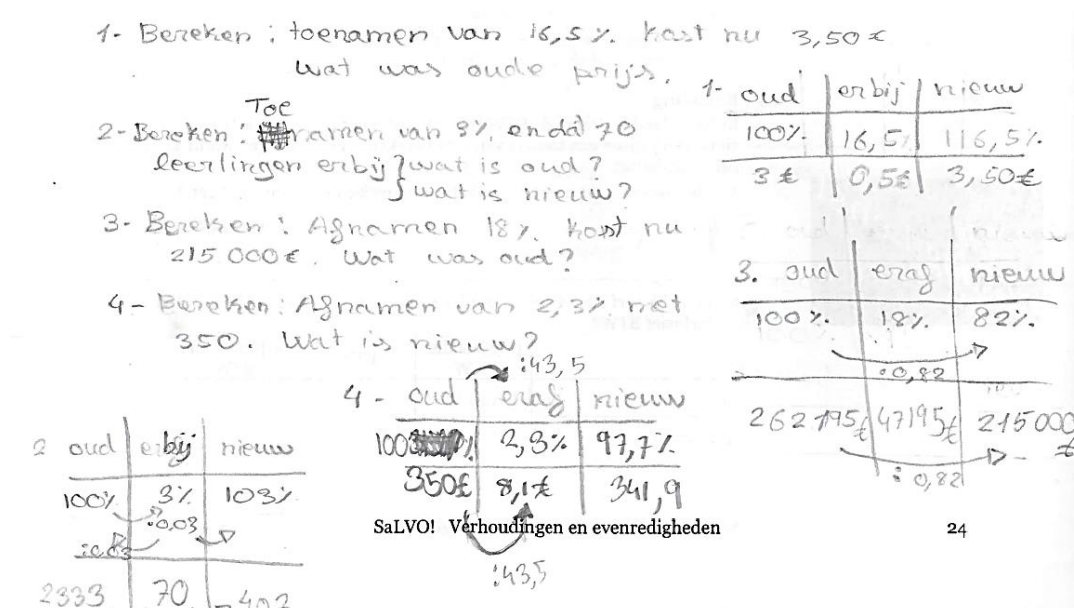 1- Bereken : toenamen van 16,5 %. kost nu 3,50 €
wat was oude prijs.
Toe
2- Bereken : namen van 3% en dà 70
leerlingen erbij } wat is oud?
wat is nieuw?
3- Bereken : Afnamen 18 %. kost nu
215 000 €. Wat was oud?
4- Bereken : Afnamen van 2,3 % met
350. Wat is nieuw?
1- oud erbij nieuw
100% 16,5% 116,5%
3 € 0,5€ 3,50€
3. oud eraf nieuw
100% 18% 82%
:0,82
262 195€ 47195€ 215000 €
: 0,82
:43,5
4 - oud eraf nieuw
100 % 2,3% 97,7%
350€ 8,1€ 341,9
:43,5
2 oud erbij nieuw
100% 3% 103%
:0,03
2333 70
SaLVO! Verhoudingen en evenredigheden 24